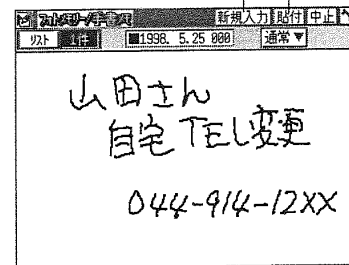 フォトメモリー/手書メモ 新規入力 貼付 中止
リスト 1件 1998. 5.25 000 通常▼
山田さん
自宅TEL変更
044-914-12XX